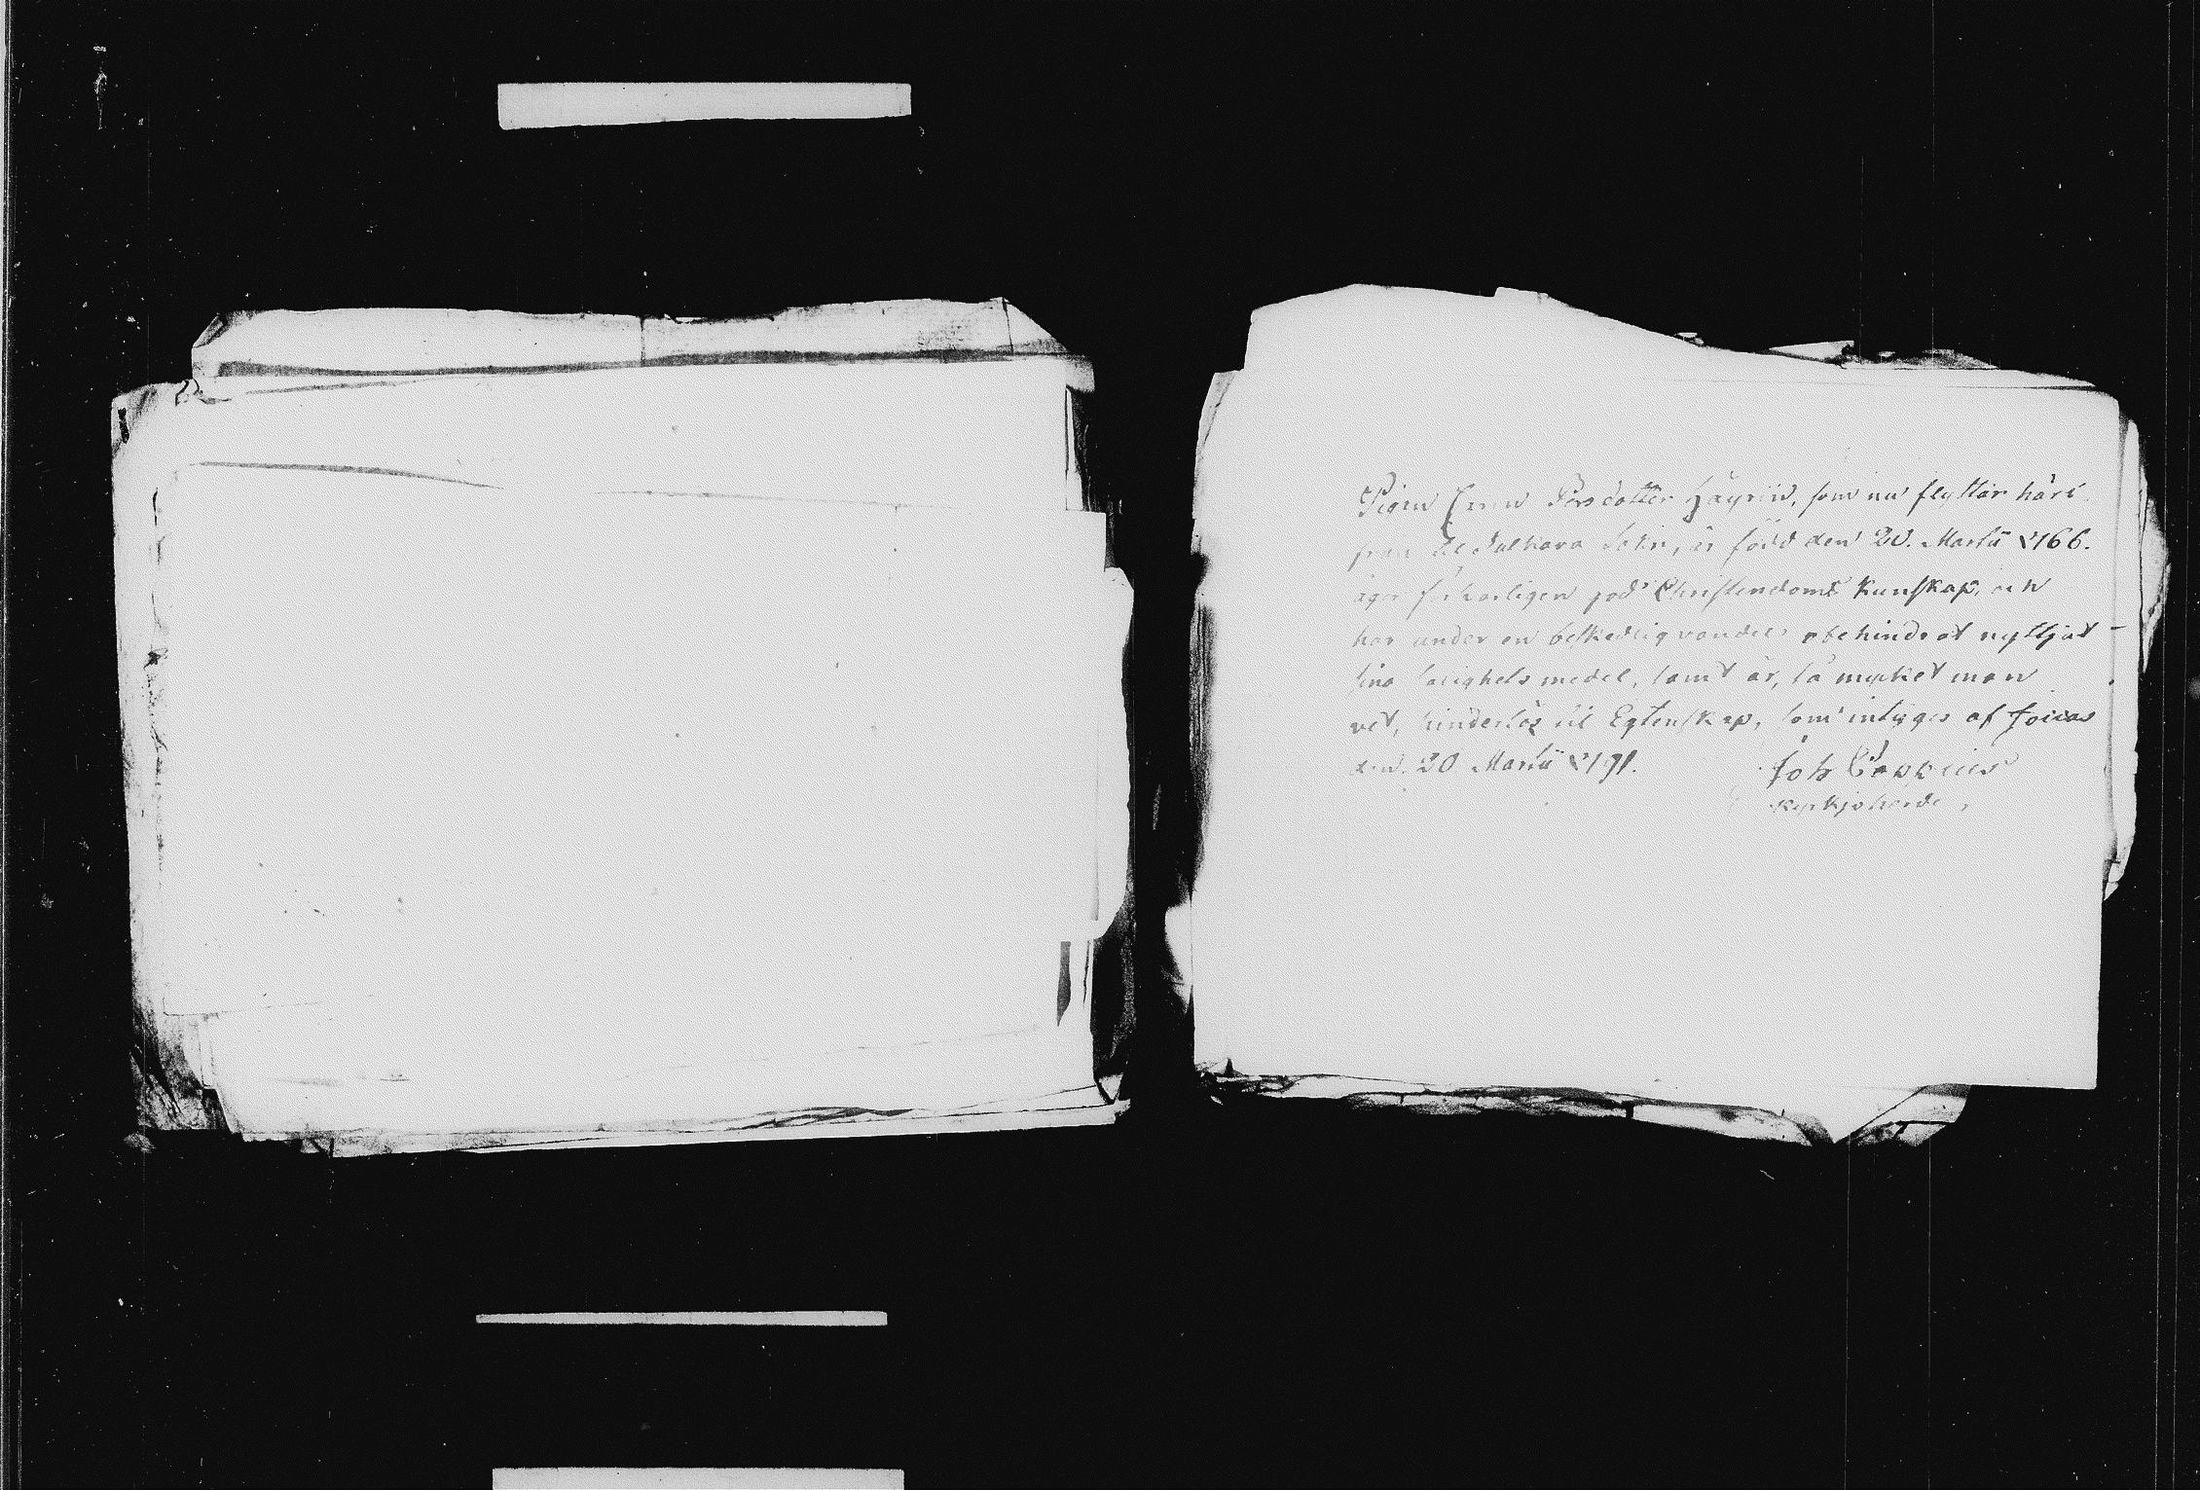 Pigan Persdotter Häyrin, som nu flyttar häri
från til Jalkara Sokn, är född den 20. Martii 1766.
äger försvarligen god Christendoms kunskap, och
har under en beskedelig vandel obehindrat nyttjat
sina salighets medel, samt är, så mycket man
vet, hinderlös til Egtenskap, som intygas af Joicas
den 20 Martii 1791. Joh
Kyrkjoherde